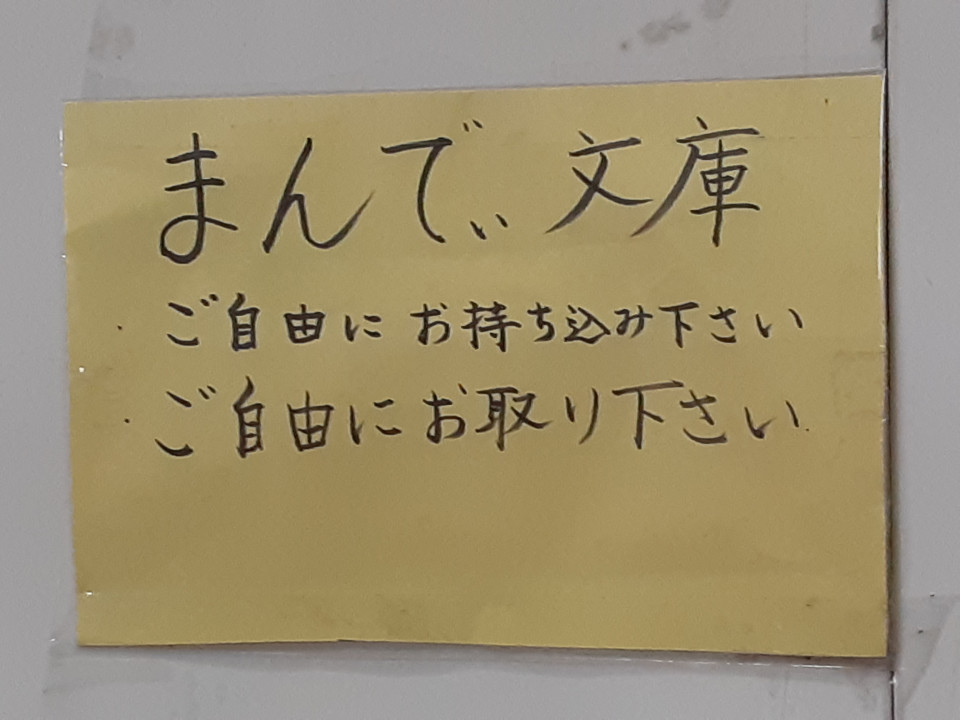 まんでぃ文庫
・ご自由にお持ち込み下さい
・ご自由にお取り下さい